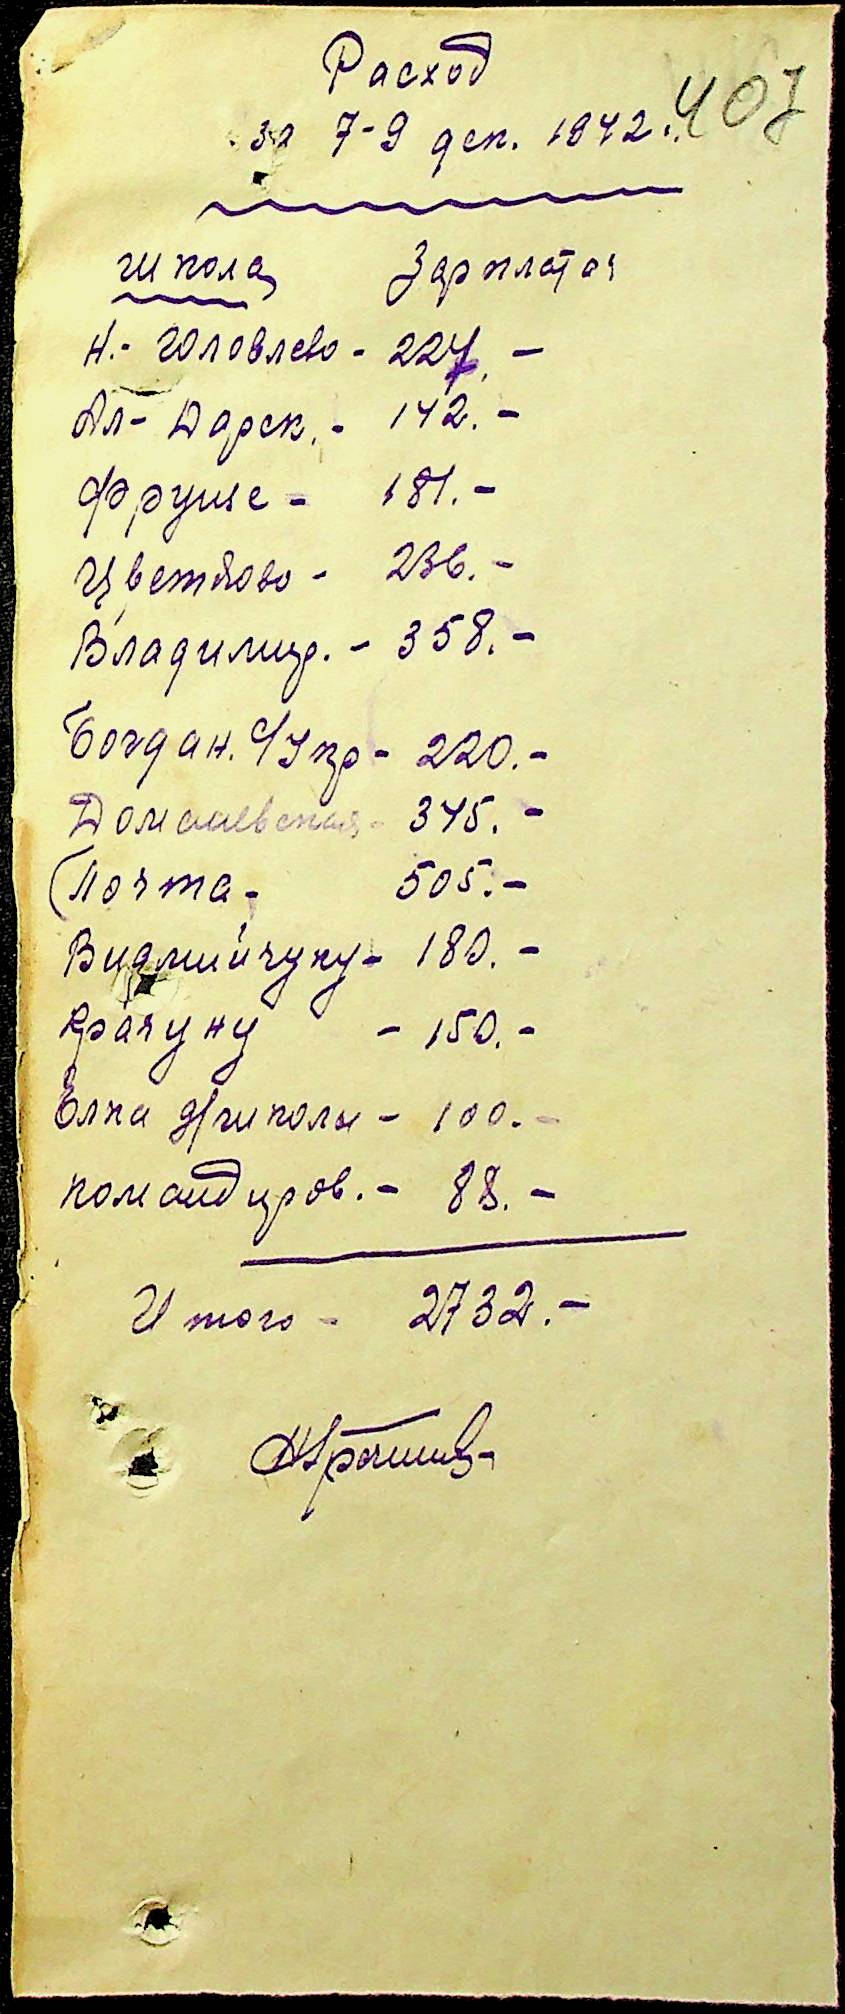 407
Расход
за 7-9 дек. 1942 г.
Школа Зарплата
Н.- Головлево - 227. -
Ал- Дарск. - 142. -
Фрунзе - 181. -
Цветково - 236. -
Владимир. - 358. -
Богдан. - 220. -
Доманевская - 345. -
Почта - 505. -
Видмийчуку - 180. -
Крачуну - 150. -
Елка д/школы - 100. -
командиров. - 88. -
Итого - 2732. -